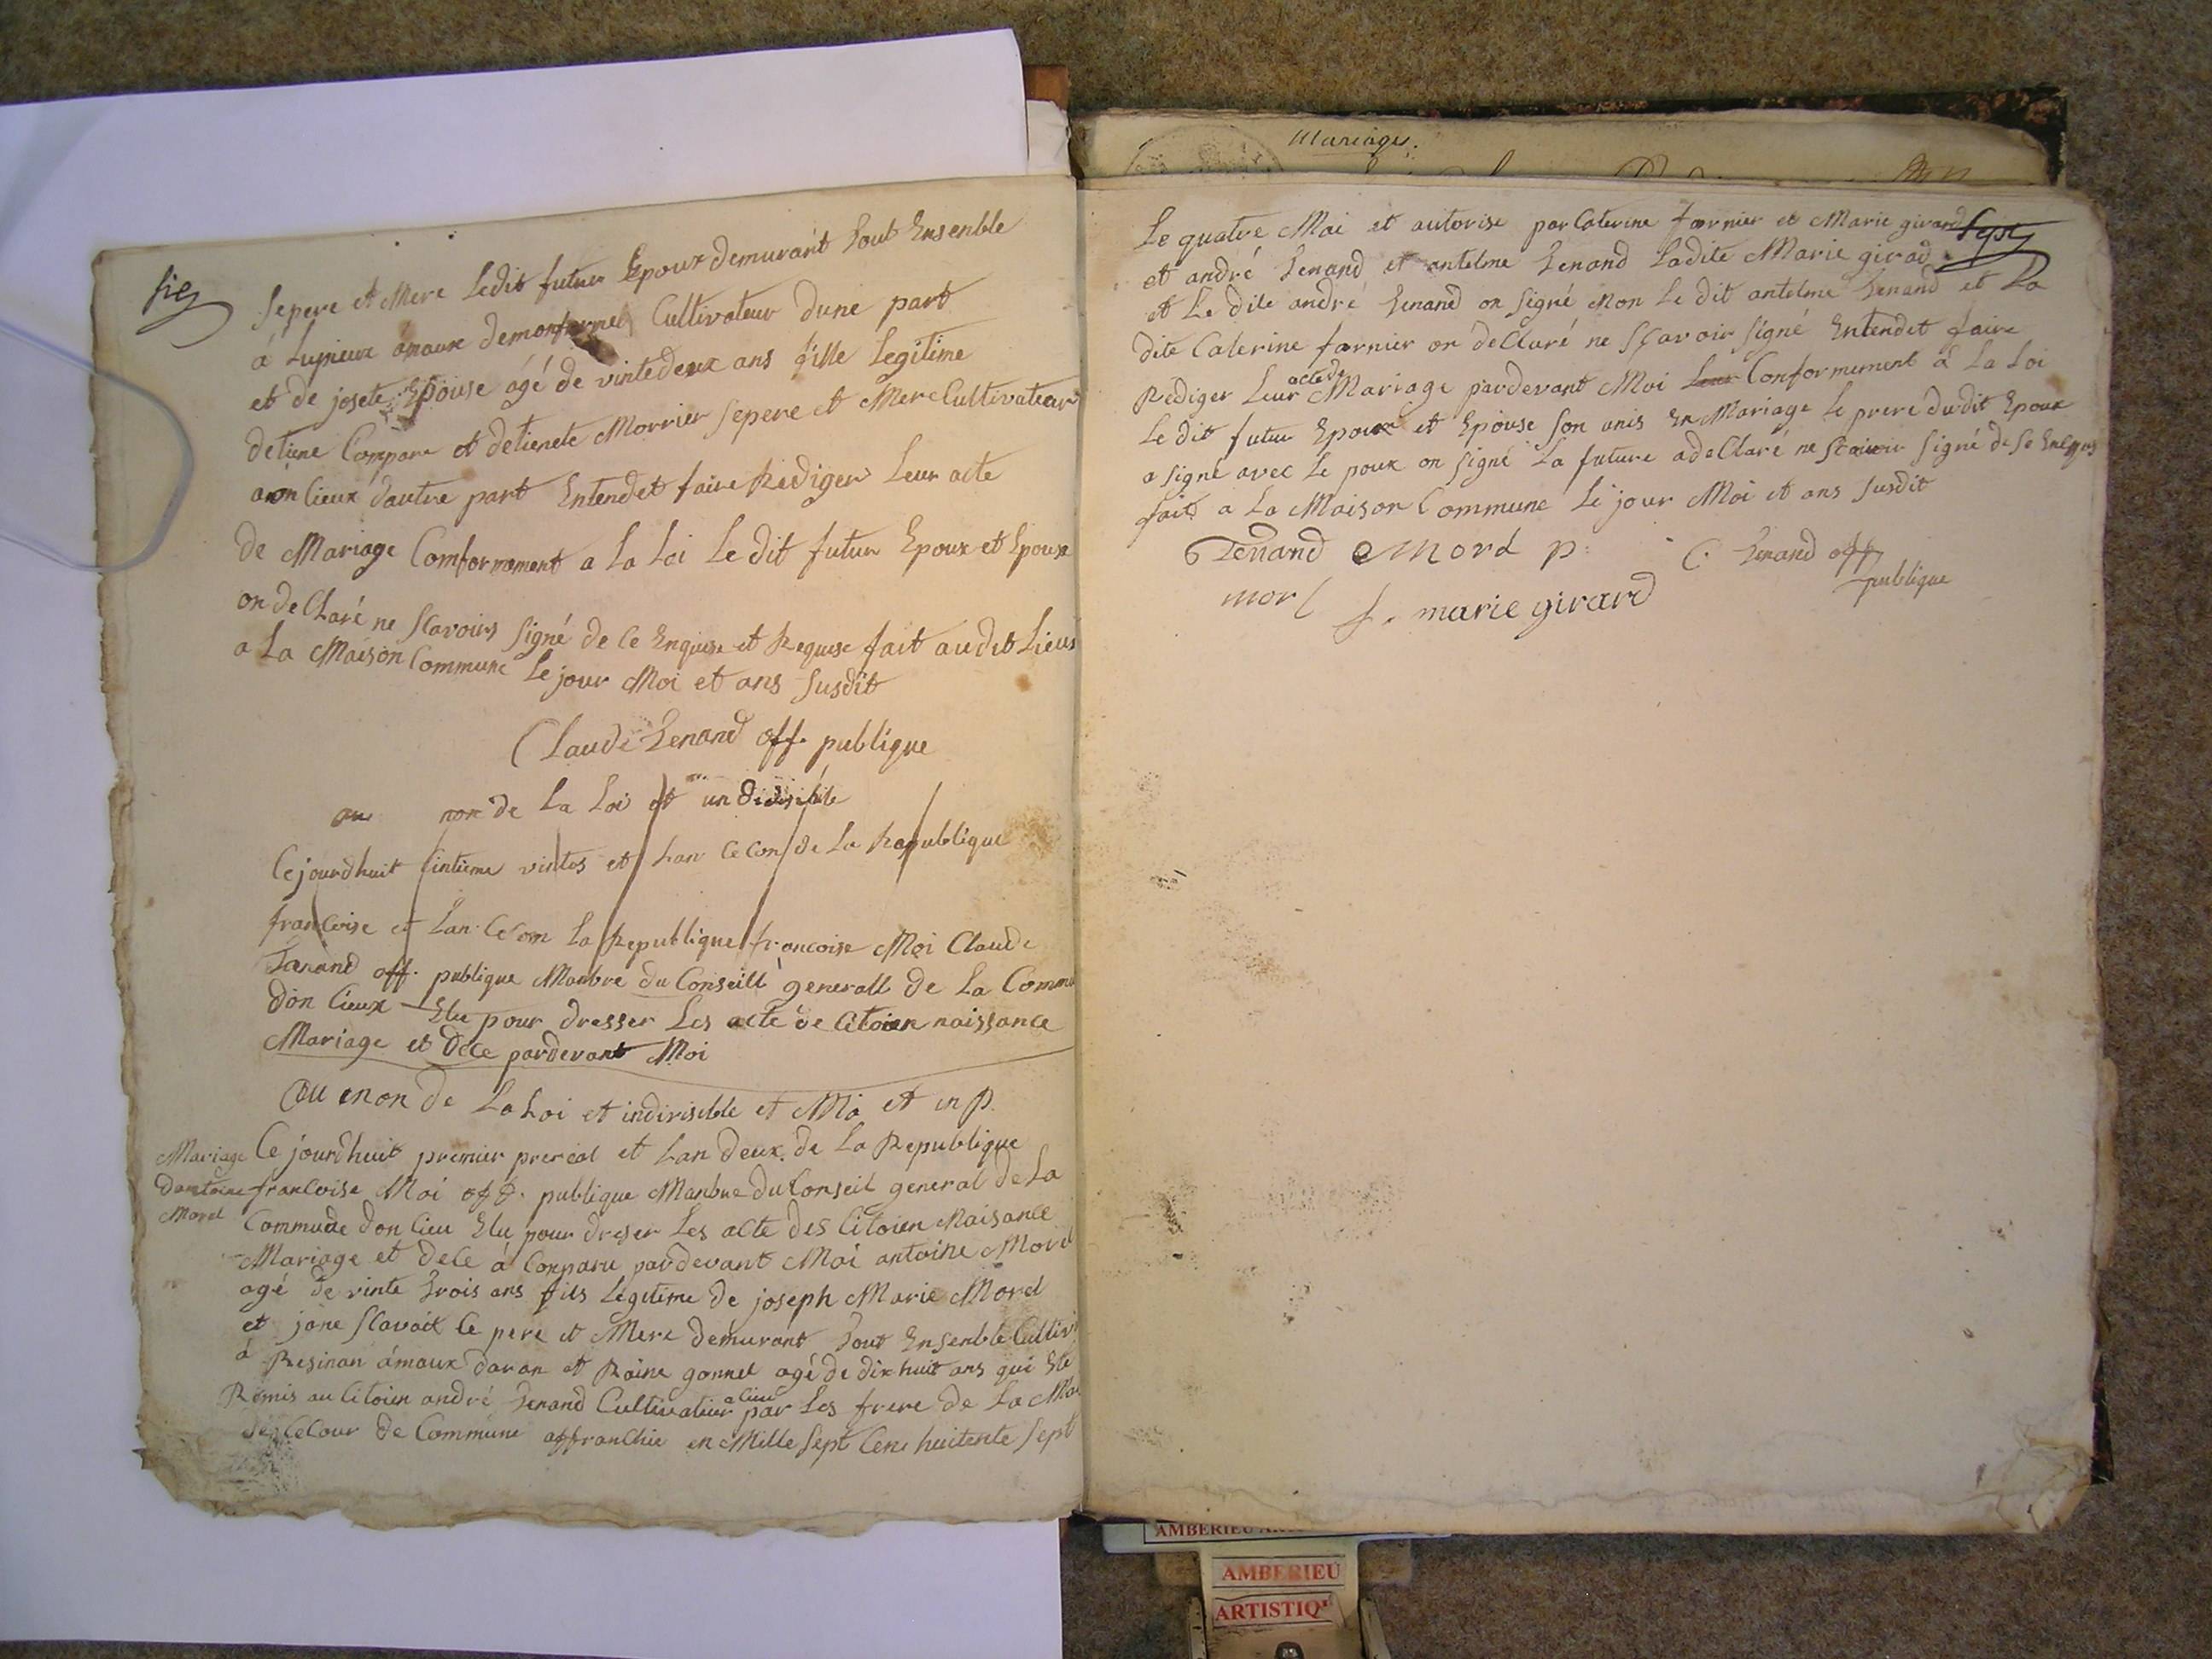 Sepere et Mere Ledit futur Epoux demurant tout Ensenble
à Lupieux amaux demonfermel Cultivateur dune part
et de josete Epouse agé de vintedeux ans fille Legitime
detiene Compare et detienete Morrier Sepere et Mere Cultivateur
a on lieux dautre part Entendet faire Rediger Leur acte
de Mariage Comformement a La Loi Le dit futur Epoux et Epouse
on deClaré ne Scavoirs Signé de Ce Enquise et Requise fait audit Lieus
a La Maison Commune Le jour Moi et ans Susdit
Claude Tenand off. publique
au non de La Loi et un divisible
Cejourdhuit Cintieme vintos et Lan Cecon de La Republique
francoise et Lan Cecon La Republique francoise Moi Claude
Tanand off. publique Manbre du Conseill generall de La Commu
don lieux Elu pour dresser Les acte de Citoien naissance
Mariage et DeCe pardevant Moi
Au enon de La Loi et indivisible et Mo et in p.
Mariage
dantoine
Morel
Ce jourdhuit premier prereal et Lan deux de La Republique
francoise Moi off. publique Manbre du Conseil general de La
Commude don lieu Elu pour dreser Les acte des Citoien Naisance
Mariage et deCe à Conparu pardevant Moi antoine Morel
agé de vinte trois ans fils Legitime de joseph Marie Morel
et jane Savoit Ce pere et Mere demurant tout Ensenble Cultiv
à Resinan amaux daran et Raine gonnet agé de dix huit ans qui Ete
Remis au Citoien andré Tenand Cultivateur a lieu par Les frere de La Mai
de CeCour de Commune affranChie en Mille Sept Cens huitente Sept
Mariages.
Sept
Le quatre Mai et autorise par Caterine farnier et Marie girard
et andré Tenand et antelme Tenand Ladite Marie girad
et Le dite andré Tenand on Signé Mon Le dit antelme Tenand et La
dite Caterine farnier on deClaré ne Sçavoir Signé Entendet faire
Rediger Leur acte de Mariage pardevant Moi Leur Conformement à La Loi
Le dit futur Epoux et Epouse Son unis En Mariage Le prere dudit Epoux
a Signé avec Le poux on Signé La future adeClaré ne Scavoir Signé de Se Enquis
fait a La Maison Commune Le jour Moi et ans Susdit
Tenand Morel p. C. Tenand off
publique
morl f. marie girard
AMBERIEU
AMBERIEU
ARTISTIQ